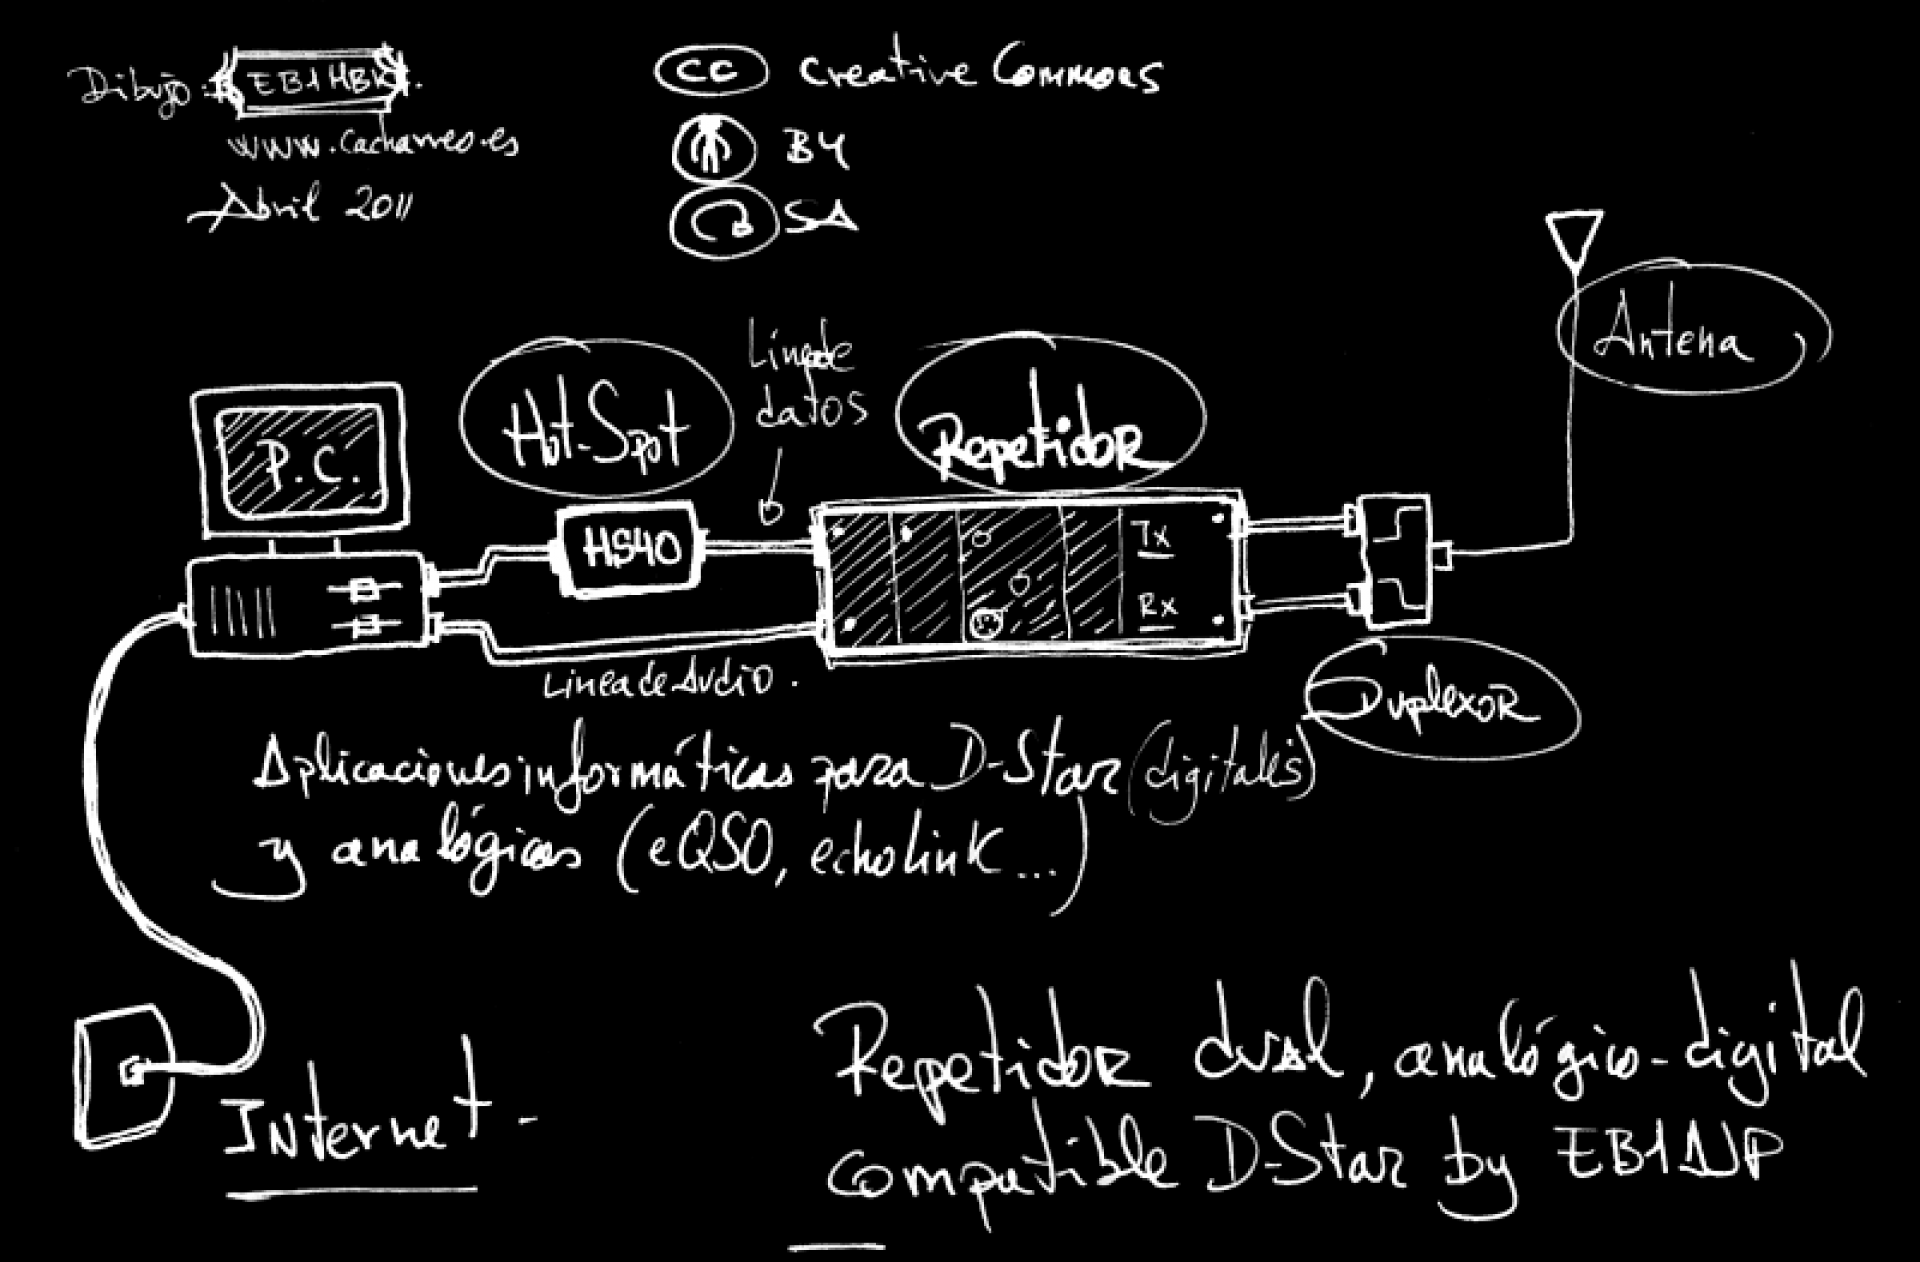 Dibujo: EB1HBK.
www.cacharreo.es
Abril 2011
cc creative Commons
BY
SA
Antena
Hot-Spot
Linea de
datos
Repetidor
P.C.
HS40
Tx
Rx
Linea de Audio.
Duplexor
Aplicaciones informáticas para D-Star (digitales)
y analógicas (eQSO, echolink...)
Internet-
Repetidor dual, analógico-digital
compatible D-Star by EB1AJP